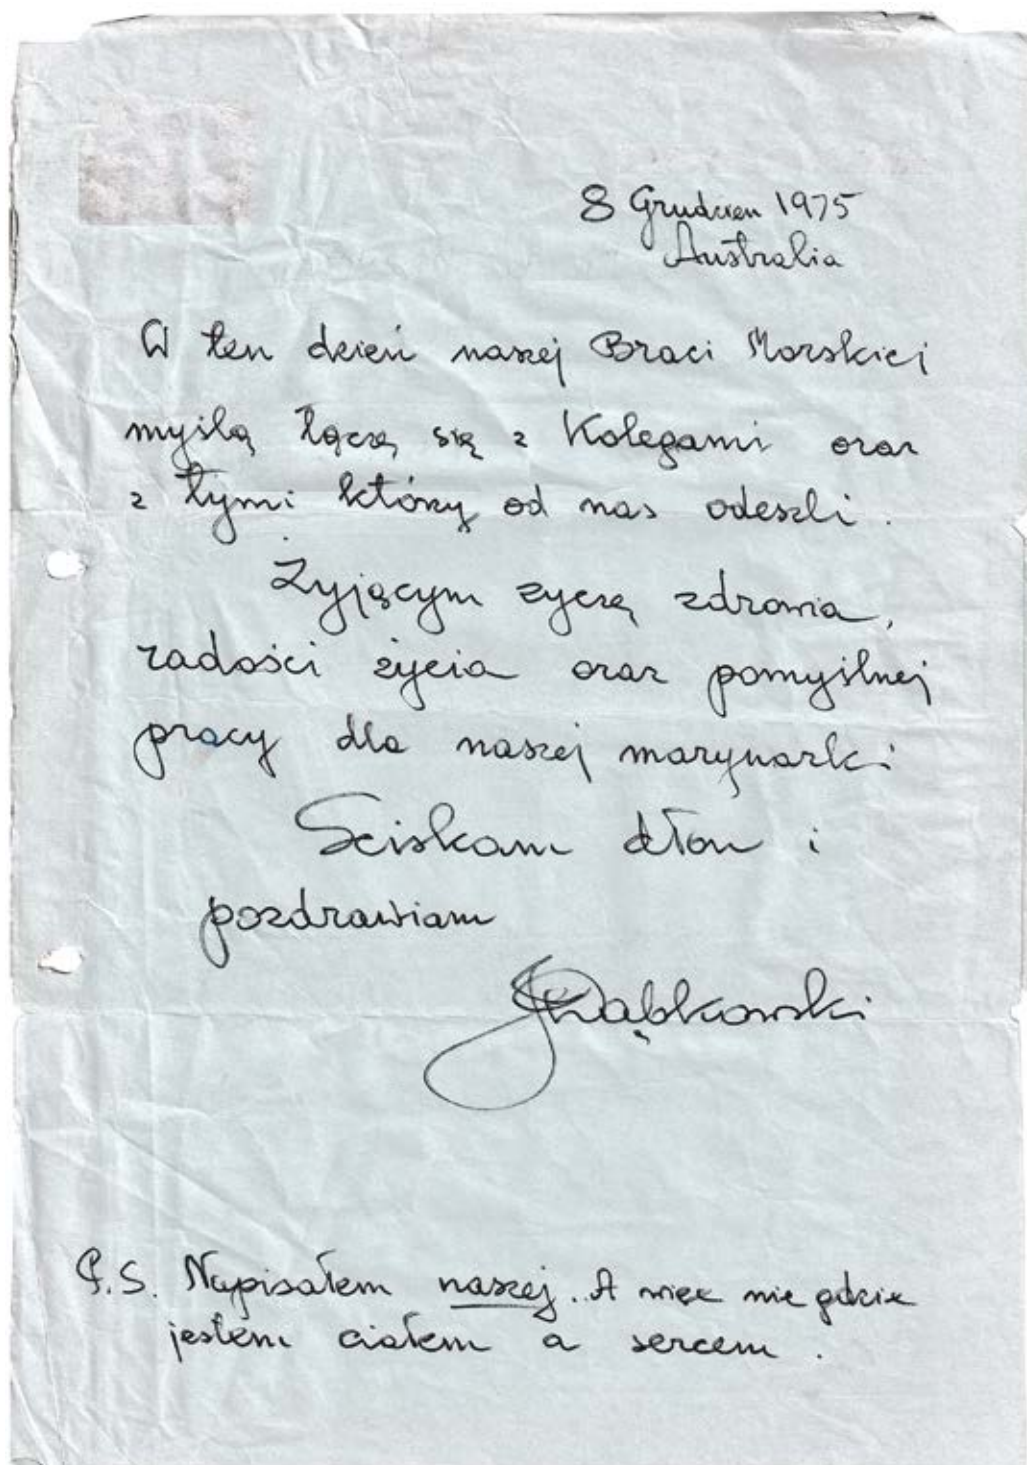 8 Grudzien 1975
Australia
W ten dzień naszej Braci Morskiej
myślą łączę się z Kolegami oraz
z tymi którzy od nas odeszli.
Żyjącym zyczę zdrowia,
radości życia oraz pomyślnej
pracy dla naszej marynarki
Sciskam dłon i
pozdrawiam
Dąbkowski
P.S. Napisałem naszej. A więc nie gdzie
jestem ciałem a sercem.